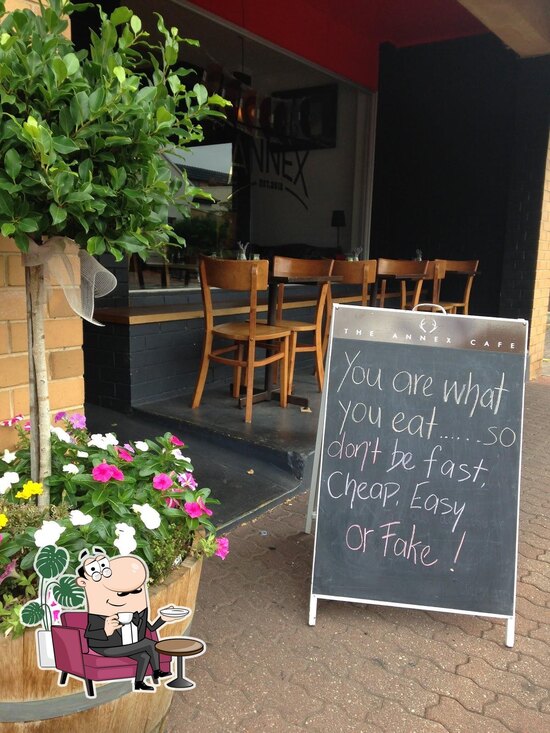 ANNEX
THE ANNEX CAFE
You are what
you eat......so
don't be fast,
Cheap, Easy
or Fake!